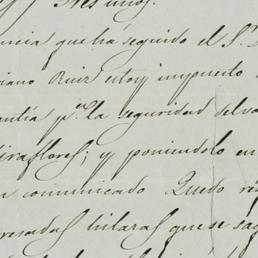 Tres unos.
ncia que ha seguido el S.r
iano Ruiz estoy impuesto
antia p.a la seguridad del va
iraflores; y poniendolo en
comunicado Quedo
resadas hilaras que se sa